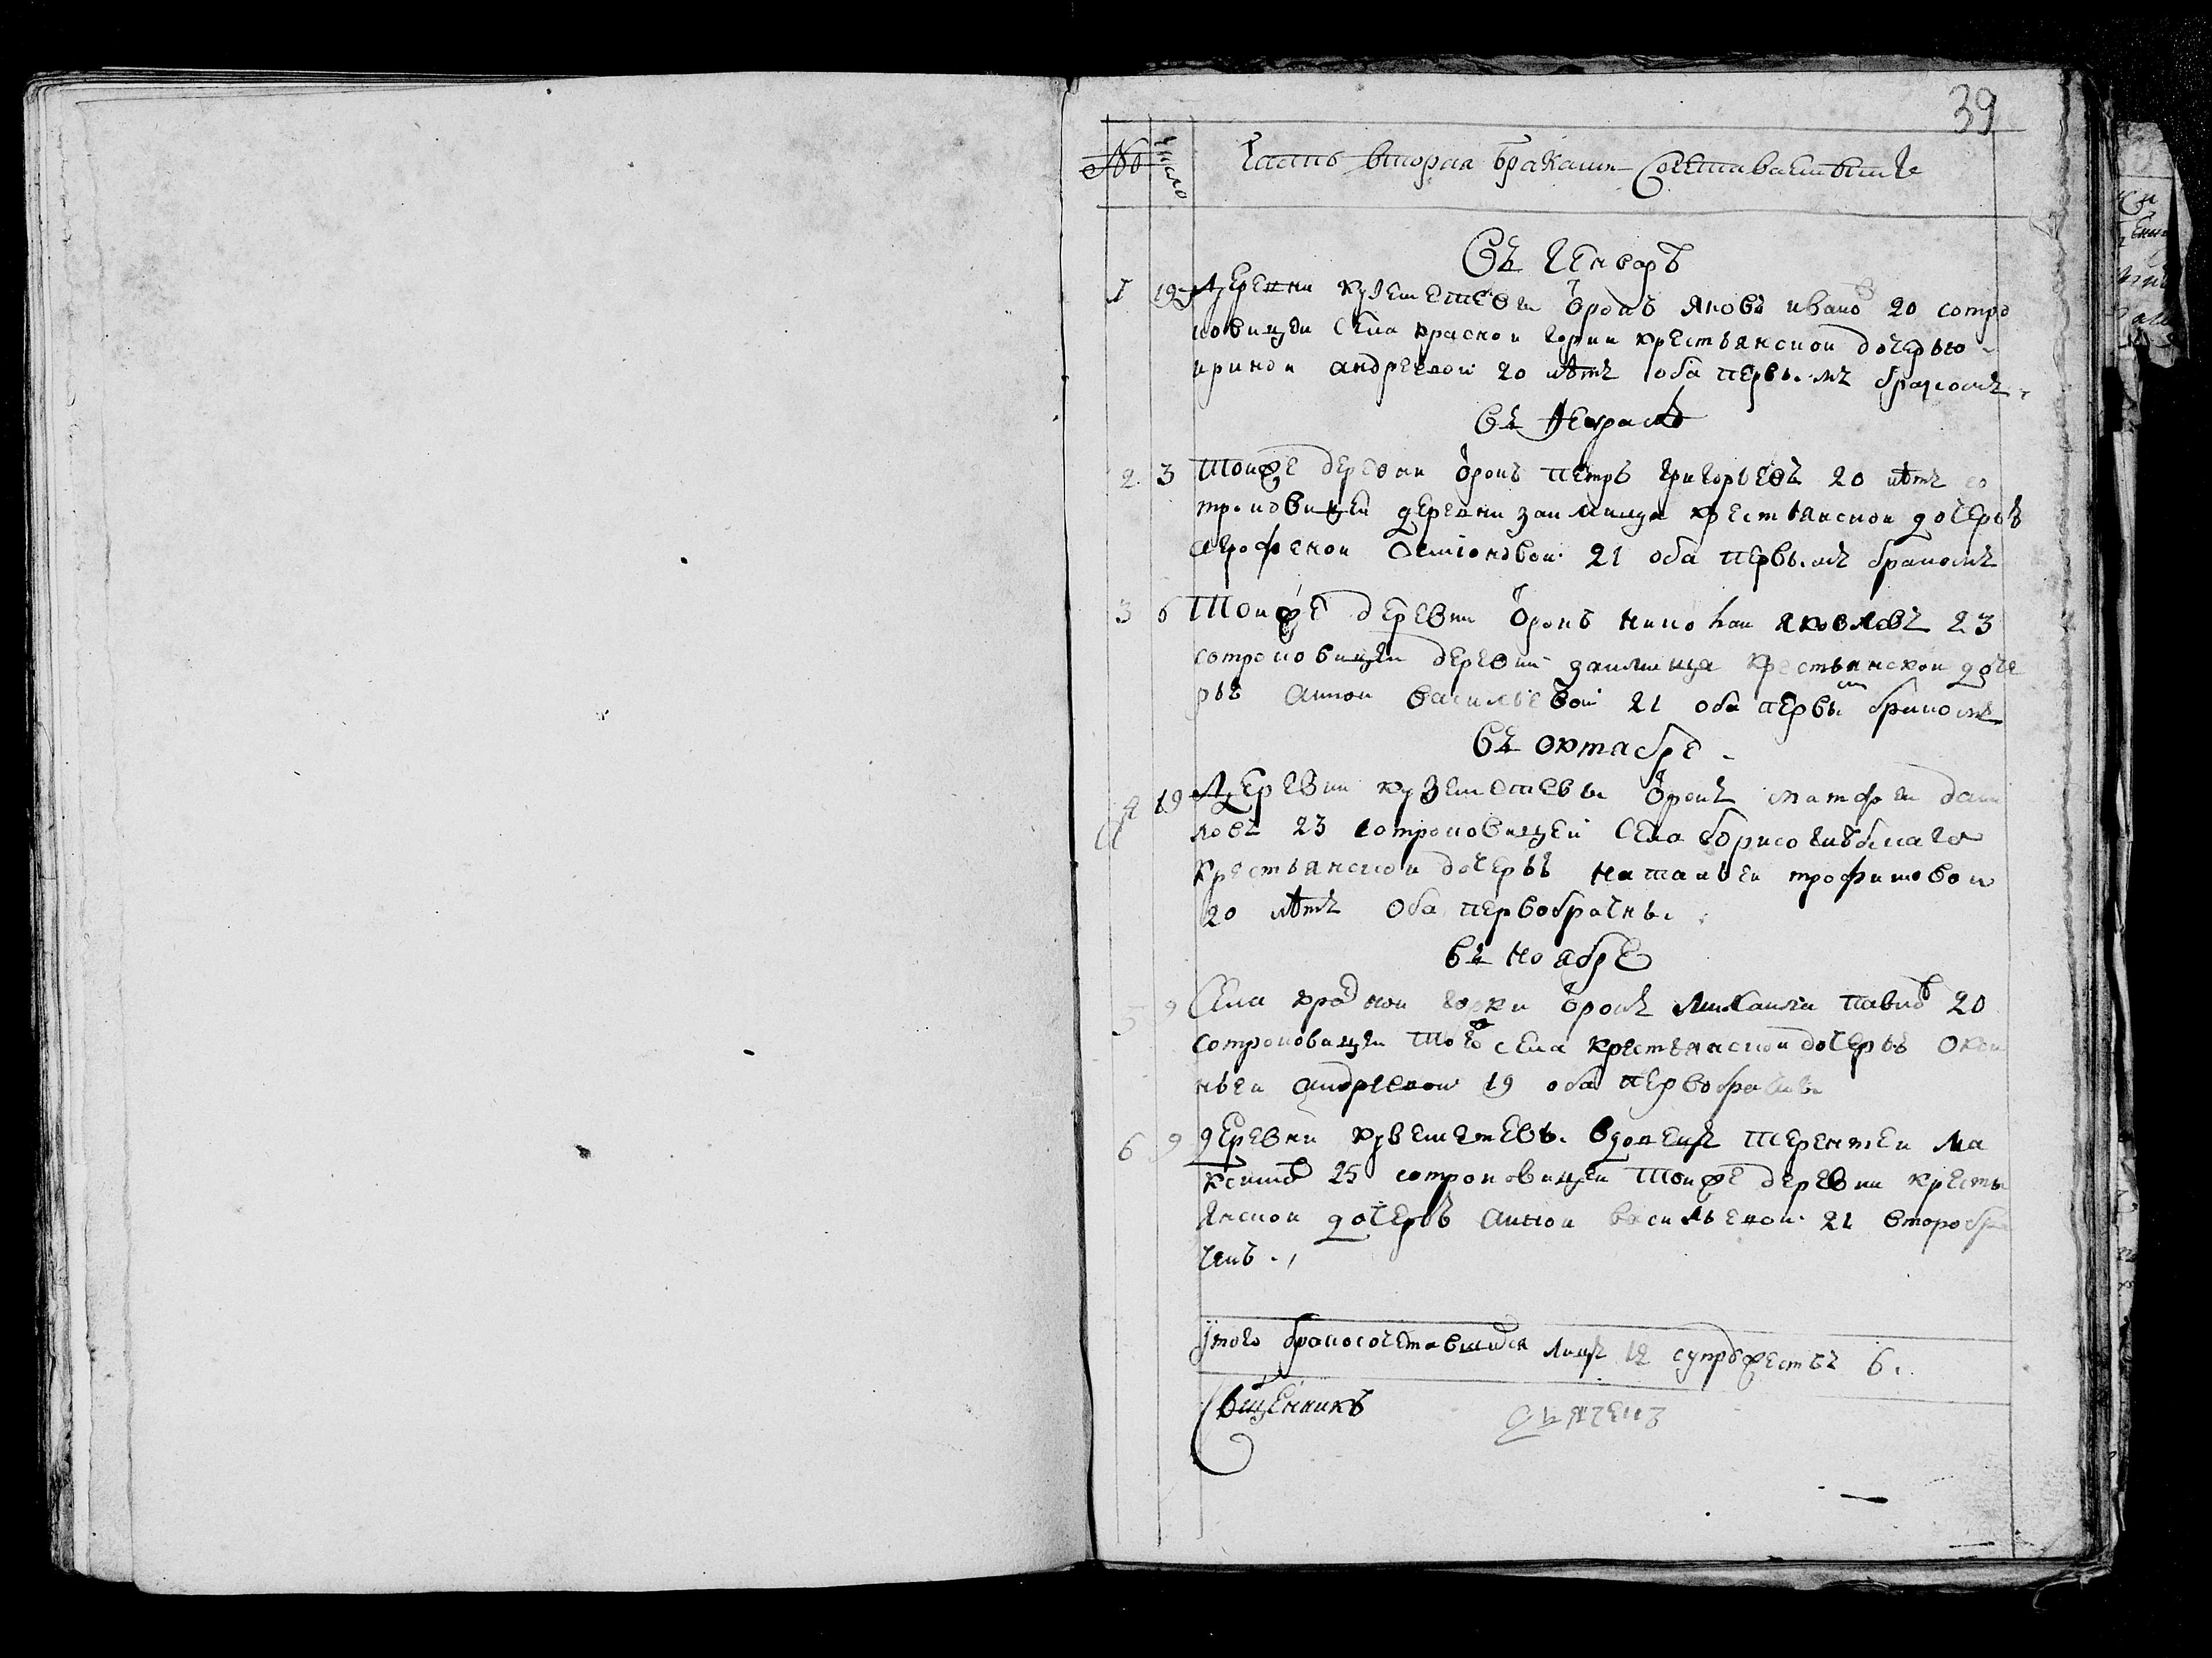 39
№ число Часть вторая бракомъ Сочетавшихся
Въ Генварѣ
1 19 Деревни кузешетевы Отрокъ Яковъ иванов 20 сотро
ковицеи Села красной горки крестьянскои дочерью
ириной андреевой 20 лѣтъ оба первымъ бракомъ
Въ Февралѣ
2 3 Тоиже деревни отрокъ петръ григорьевъ 20 лѣтъ со
троковицеи деревни займища крестьянскои дочерью
21 оба первымъ бракомъ
3 6 Тоиже деревни отрокъ николаи яковлевъ 23
сотроковицеи деревни займища крестьянскои доче
рью анной васильевой 21 оба первым бракомъ
Въ октабре
4 19 Деревни кузешетевы отрокъ матфеи дани
ловъ 23 сотроковицеи Села борисоглѣбскаго
крестьянскои дочерью натальеи трофимовои
20 лѣтъ Оба первобрачны
въ ноабре
5 9 Села красной горки отрокъ михаила павлов 20
сотроковицеи тогож села крестьянскои дочерью окси
ньеи андреевои 19 оба первобрачны
6 9 деревни кузешетевы вдовецъ терентеи ма
ксимов 25 сотроковицеи тоиже деревни кресть
янскои дочерью анной васильевой 21 второбра
чнъ
Итого бракосочетавшихся лицъ 12 супружествъ 6.
Священникъ